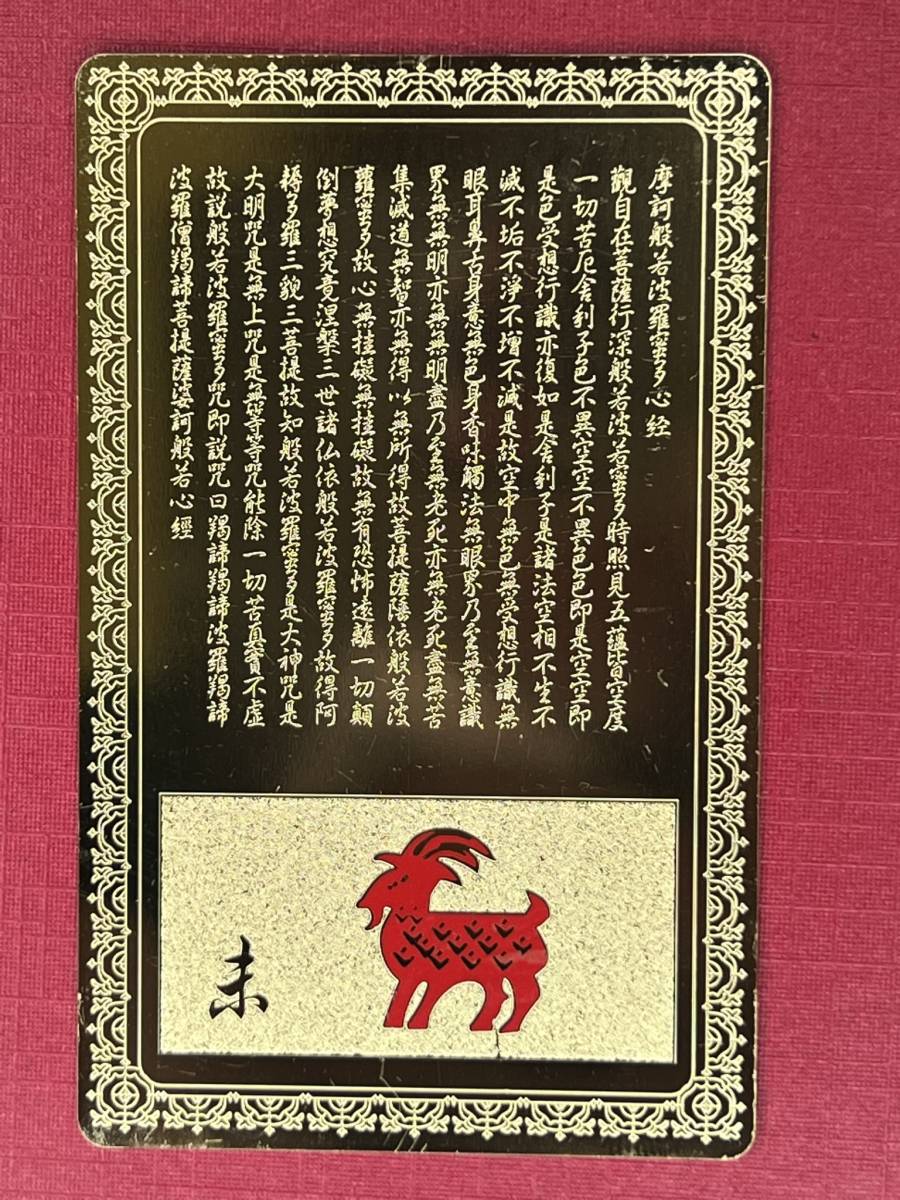 摩訶般若波羅蜜多心経
觀自在菩薩行深般若波若蜜多時照見五蘊皆空度
一切苦厄舎利子色不異空空不異色色即是空空即
是色受想行識亦復如是舎利子是諸法空相不生不
滅不垢不浄不増不減是故空中無色無受想行識無
眼耳鼻舌身意無色身香味觸法無眼界乃至無意識
界無無明亦無無明盡乃至無老死亦無老死盡無苦
集滅道無智亦無得以無所得故菩提薩陲依般若波
羅蜜多故心無挂礙無挂礙故無有恐怖遠離一切顛
倒夢想究竟涅槃三世諸仏依般若波羅蜜多故得阿
耨多羅三貌三菩提故知般若波羅蜜多是大神咒是
大明咒是無上咒是無等等咒能除一切苦真實不虚
故説般若波羅蜜多咒即説咒曰羯諦羯諦波羅羯諦
波羅僧羯諦菩提薩婆訶般若心經
未